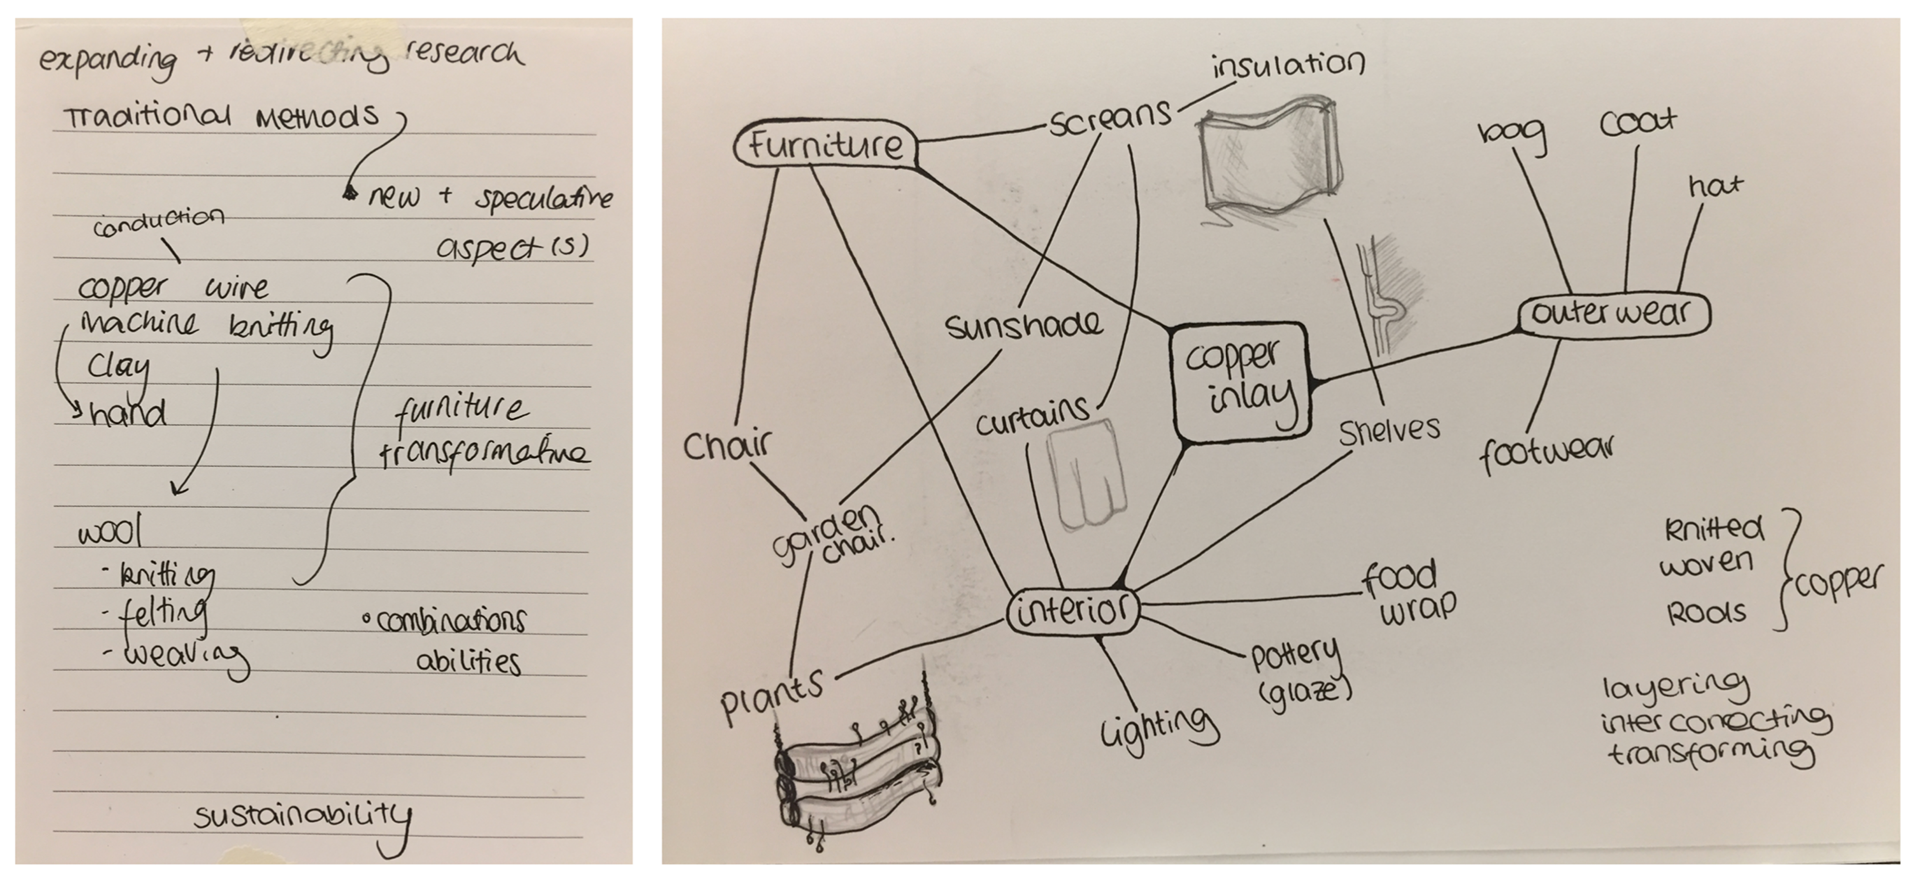 expanding + redirecting research
Traditional Methods
new + speculative
aspect(s)
conduction
copper wire
machine knitting
clay
hand
furniture
transformative
wool
- knitting
- felting
- weaving
• combinations
abilities
sustainability
insulation
screans
Furniture
bag
coat
hat
sunshade
outerwear
copper
inlay
curtains
Chair
Shelves
footwear
garden
chair.
knitted
woven
Rods
copper
food
wrap
interior
pottery
(glaze)
plants
lighting
layering
interconnecting
transforming